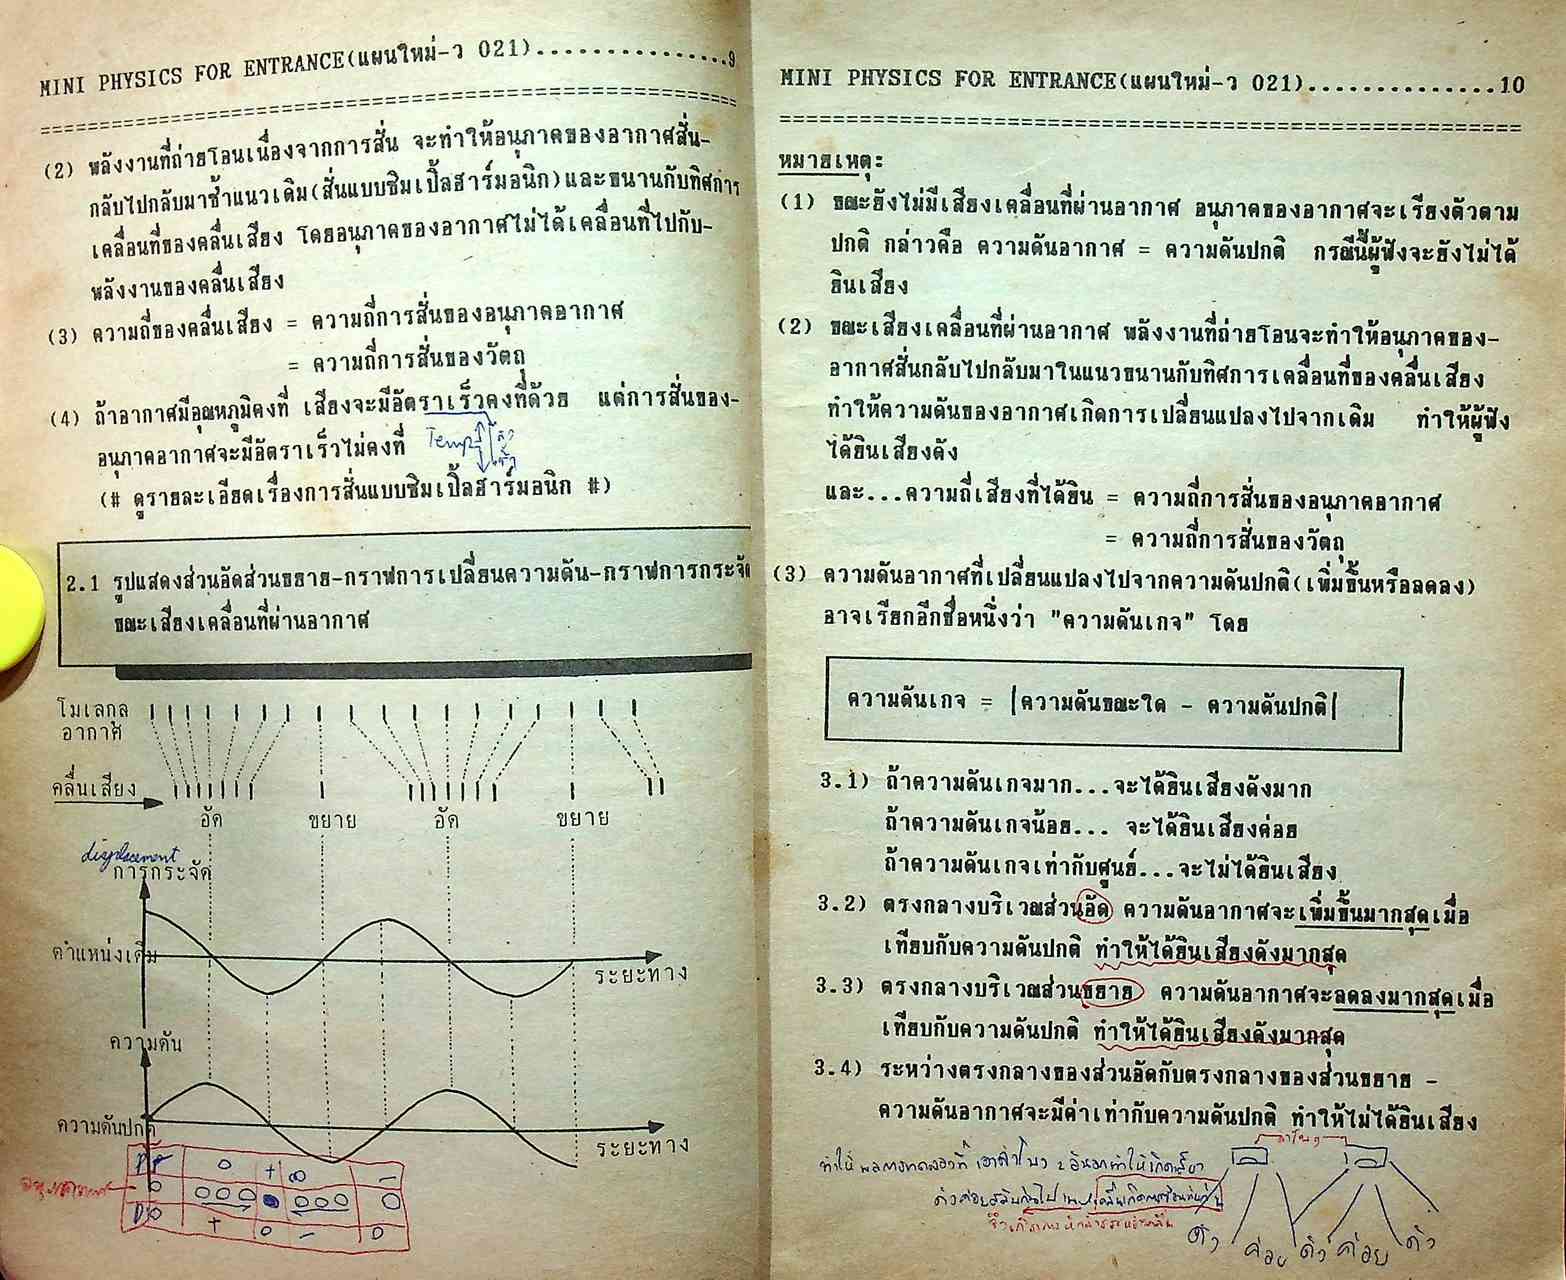 MINI PHYSICS FOR ENTRANCE(แผนใหม่-ว 021)................9
(2) พลังงานที่ถ่ายโอนเนื่องจากการสั่น จะทำให้อนุภาคของอากาศสั่น-
กลับไปกลับมาซ้ำแนวเดิม(สั่นแบบซิมเปิ้ลฮาร์มอนิก)และขนานกับทิศการ
เคลื่อนที่ของคลื่นเสียง โดยอนุภาคของอากาศไม่ได้เคลื่อนที่ไปกับ-
พลังงานของคลื่นเสียง
(3) ความถี่ของคลื่นเสียง = ความถี่การสั่นของอนุภาคอากาศ
= ความถี่การสั่นของวัตถุ
(4) ถ้าอากาศมีอุณหภูมิคงที่ เสียงจะมีอัตราเร็วคงที่ด้วย แต่การสั่นของ-
อนุภาคอากาศจะมีอัตราเร็วไม่คงที่ Temp
(# ดูรายละเอียดเรื่องการสั่นแบบซิมเปิ้ลฮาร์มอนิก #)
2.1 รูปแสดงส่วนอัดส่วนขยาย-กราฟการเปลี่ยนความดัน-กราฟการกระจัด
ขณะเสียงเคลื่อนที่ผ่านอากาศ
โมเลกุล
อากาศ
คลื่นเสียง
อัด ขยาย อัด ขยาย
displacement
การกระจัด
ตำแหน่งเดิม
ระยะทาง
ความดัน
ความดันปกติ
ระยะทาง
MINI PHYSICS FOR ENTRANCE(แผนใหม่-ว 021)..............10
หมายเหตุ:
(1) ขณะยังไม่มีเสียงเคลื่อนที่ผ่านอากาศ อนุภาคของอากาศจะเรียงตัวตาม
ปกติ กล่าวคือ ความดันอากาศ = ความดันปกติ กรณีนี้ผู้ฟังจะยังไม่ได้
ยินเสียง
(2) ขณะเสียงเคลื่อนที่ผ่านอากาศ พลังงานที่ถ่ายโอนจะทำให้อนุภาคของ-
อากาศสั่นกลับไปกลับมาในแนวขนานกับทิศการเคลื่อนที่ของคลื่นเสียง
ทำให้ความดันของอากาศเกิดการเปลี่ยนแปลงไปจากเดิม ทำให้ผู้ฟัง
ได้ยินเสียงดัง
และ...ความถี่เสียงที่ได้ยิน = ความถี่การสั่นของอนุภาคอากาศ
= ความถี่การสั่นของวัตถุ
(3) ความดันอากาศที่เปลี่ยนแปลงไปจากความดันปกติ(เพิ่มขึ้นหรือลดลง)
อาจเรียกอีกชื่อหนึ่งว่า "ความดันเกจ" โดย
ความดันเกจ = |ความดันขณะใด - ความดันปกติ|
3.1) ถ้าความดันเกจมาก...จะได้ยินเสียงดังมาก
ถ้าความดันเกจน้อย... จะได้ยินเสียงค่อย
ถ้าความดันเกจเท่ากับศูนย์...จะไม่ได้ยินเสียง
3.2) ตรงกลางบริเวณส่วนอัด ความดันอากาศจะเพิ่มขึ้นมากสุดเมื่อ
เทียบกับความดันปกติ ทำให้ได้ยินเสียงดังมากสุด
3.3) ตรงกลางบริเวณส่วนขยาย ความดันอากาศจะลดลงมากสุดเมื่อ
เทียบกับความดันปกติ ทำให้ได้ยินเสียงดังมากสุด
3.4) ระหว่างตรงกลางของส่วนอัดกับตรงกลางของส่วนขยาย -
ความดันอากาศจะมีค่าเท่ากับความดันปกติ ทำให้ไม่ได้ยินเสียง
ลำโพง
ดัง ค่อย ดัง ค่อย ดัง